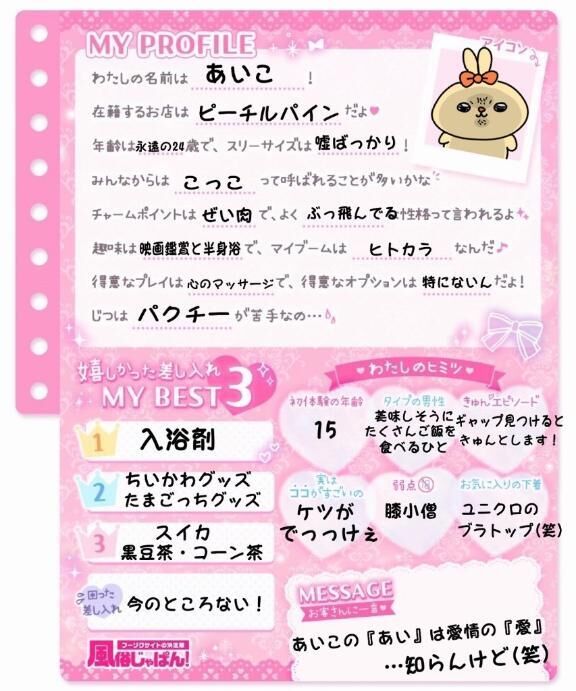 MY PROFILE
アイコン
わたしの名前は あいこ !
在籍するお店は ピーチルパイン だよ♥
年齢は永遠の24歳で、スリーサイズは 嘘ばっかり !
みんなからは こっこ って呼ばれることが多いかな
チャームポイントは ぜい肉 で、よく ぶっ飛んでる性格って言われるよ
趣味は映画鑑賞と半身浴で、マイブームは ヒトカラ なんだ♪
得意なプレイは 心のマッサージで、得意なオプションは 特にないんだよ!
じつは パクチー が苦手なの…
嬉しかった差し入れ
MY BEST3
1 入浴剤
2 ちいかわグッズ
たまごっちグッズ
3 スイカ
黒豆茶・コーン茶
困った
差し入れ
今のところない!
♥わたしのヒミツ♥
初体験の年齢
15
タイプの男性
美味しそうに
たくさんご飯を
食べるひと
きゅんエピソード
ギャップ見つけると
きゅんとします!
実は
ココがすごいの
ケツが
でっっけぇ
弱点
膝小僧
お気に入りの下着
ユニクロの
ブラトップ(笑)
MESSAGE
お客さんに一言♥
あいこの『あい』は愛情の『愛』
…知らんけど(笑)
フーゾクサイトの決定版
風俗じゃぱん!